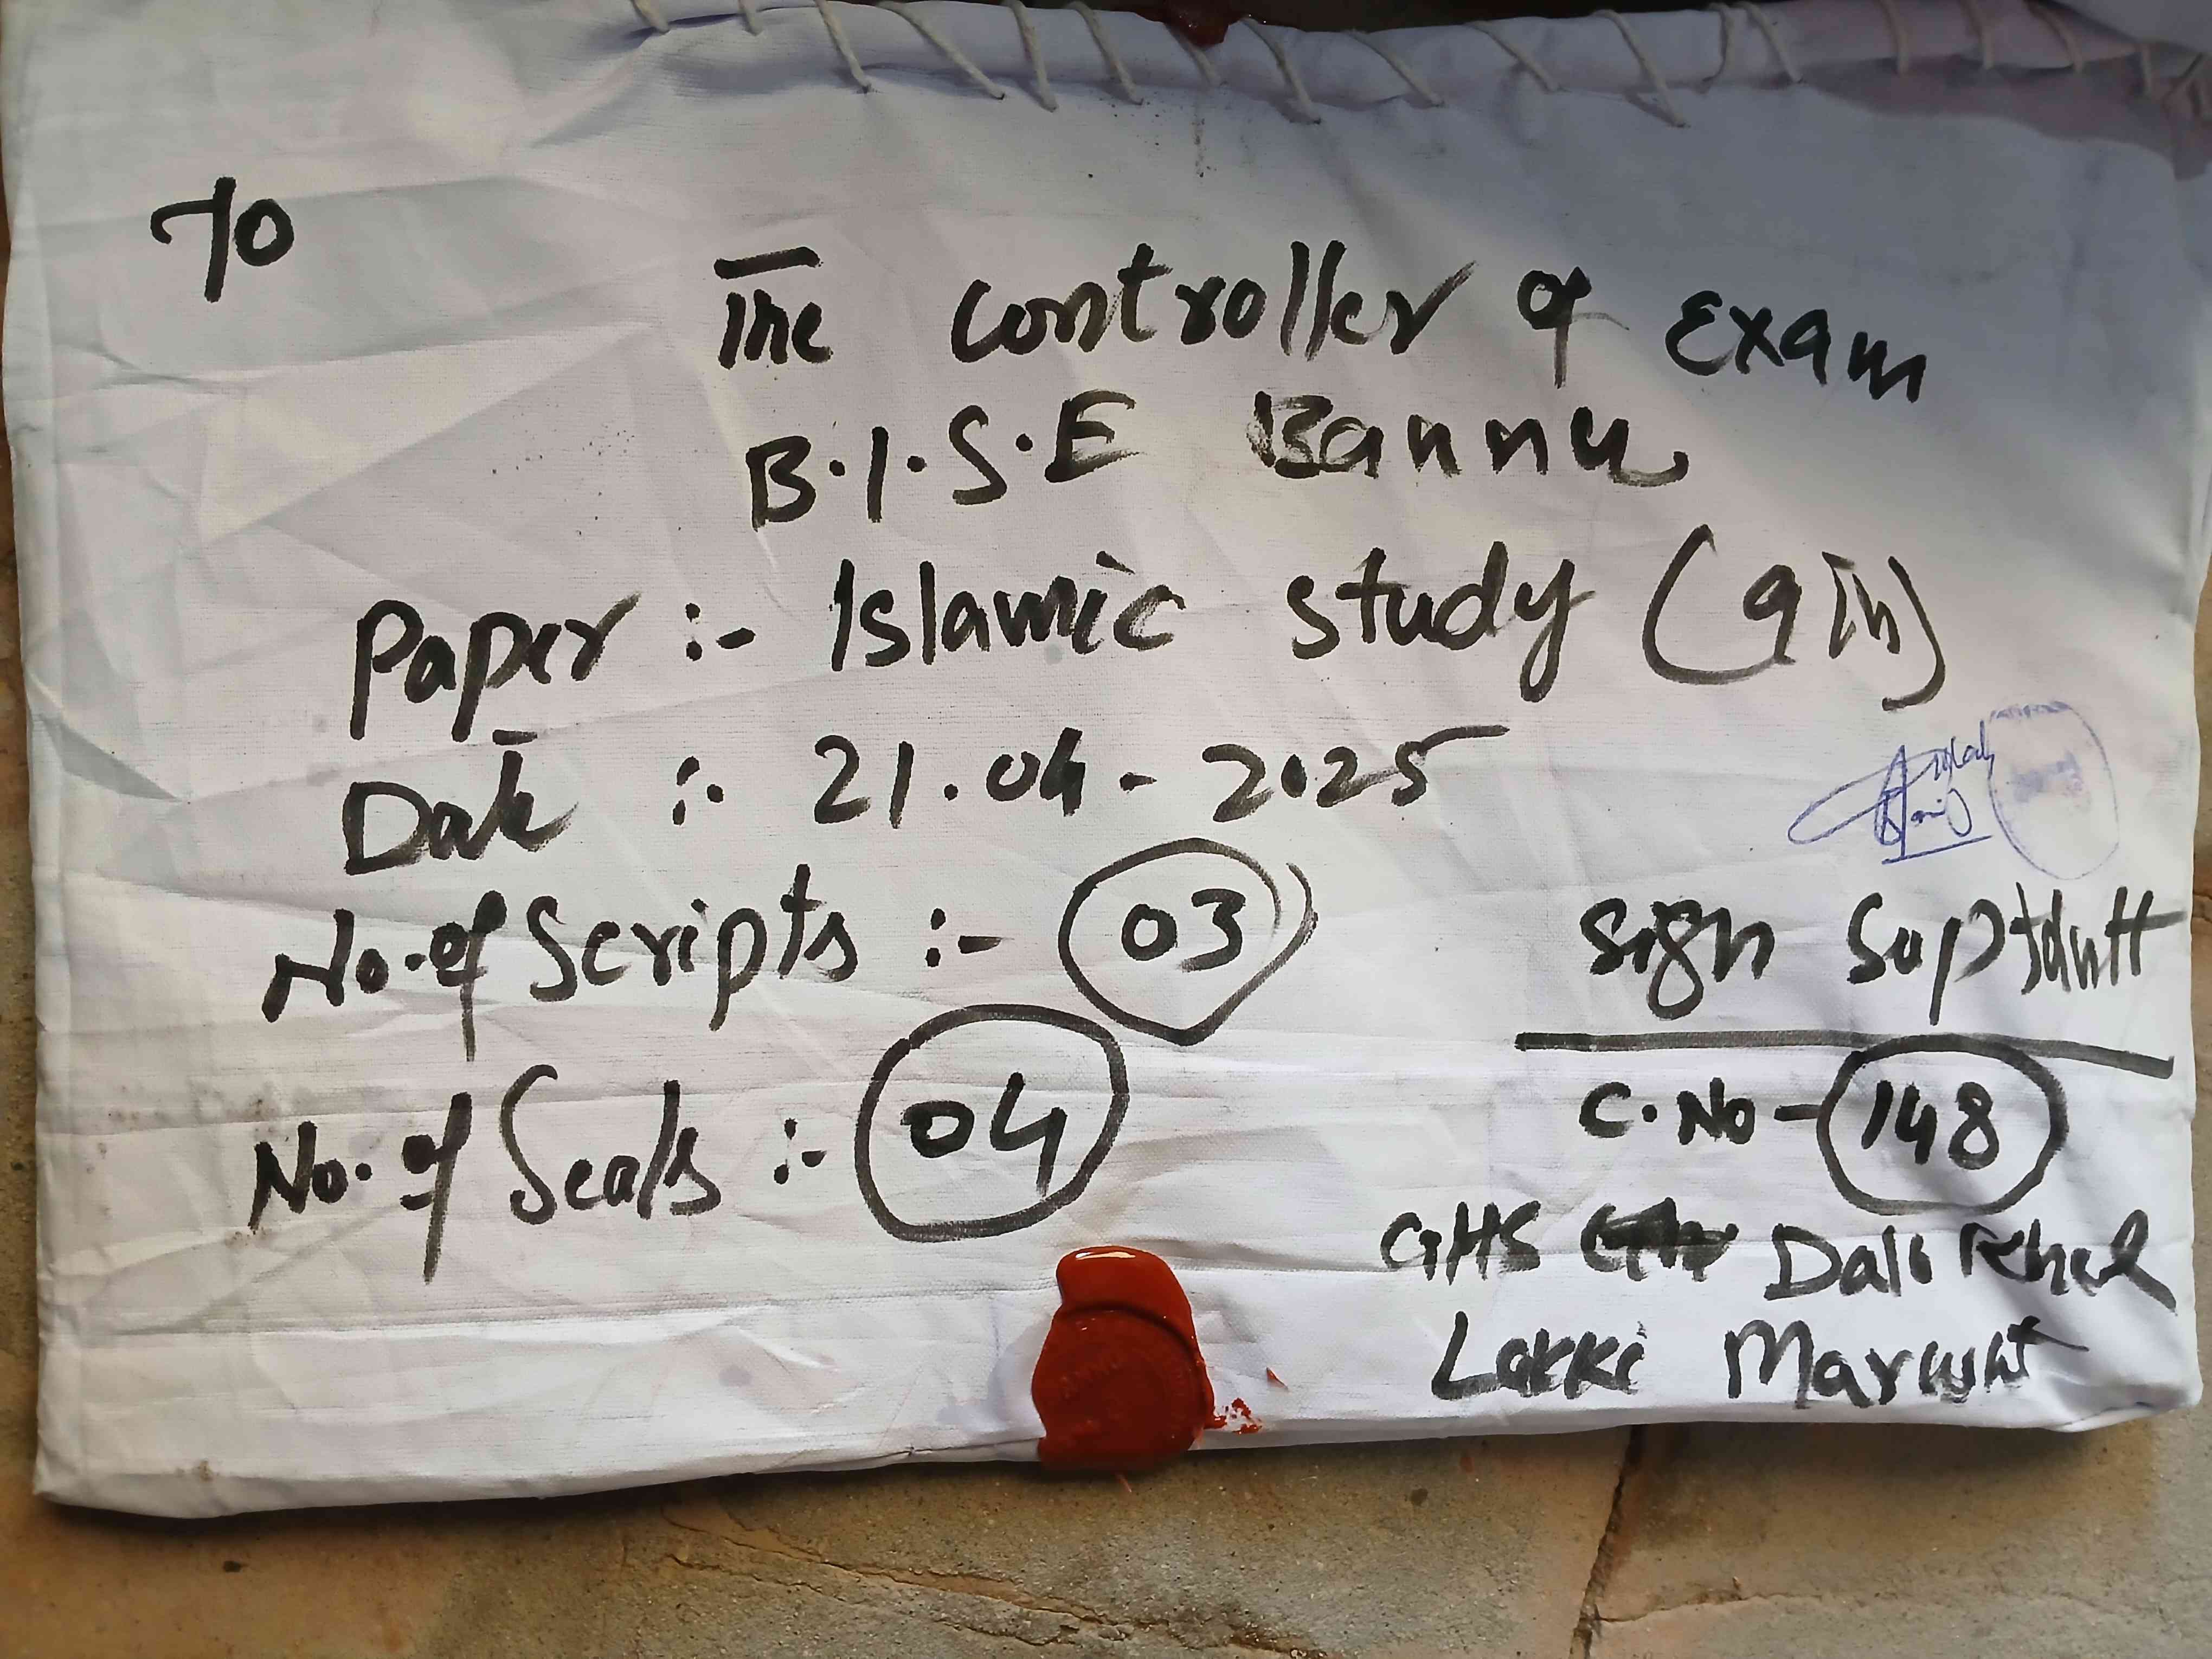 To
The controller of Exam
B.I.S.E Bannu
Paper :- Islamic study (9th)
Date :- 21.04-2025
No. of Scripts :- 03
No. of Seals :- 04
Sign Suptdntt
C.No - 148
GHS Dalo Khel
Lakki Marwat